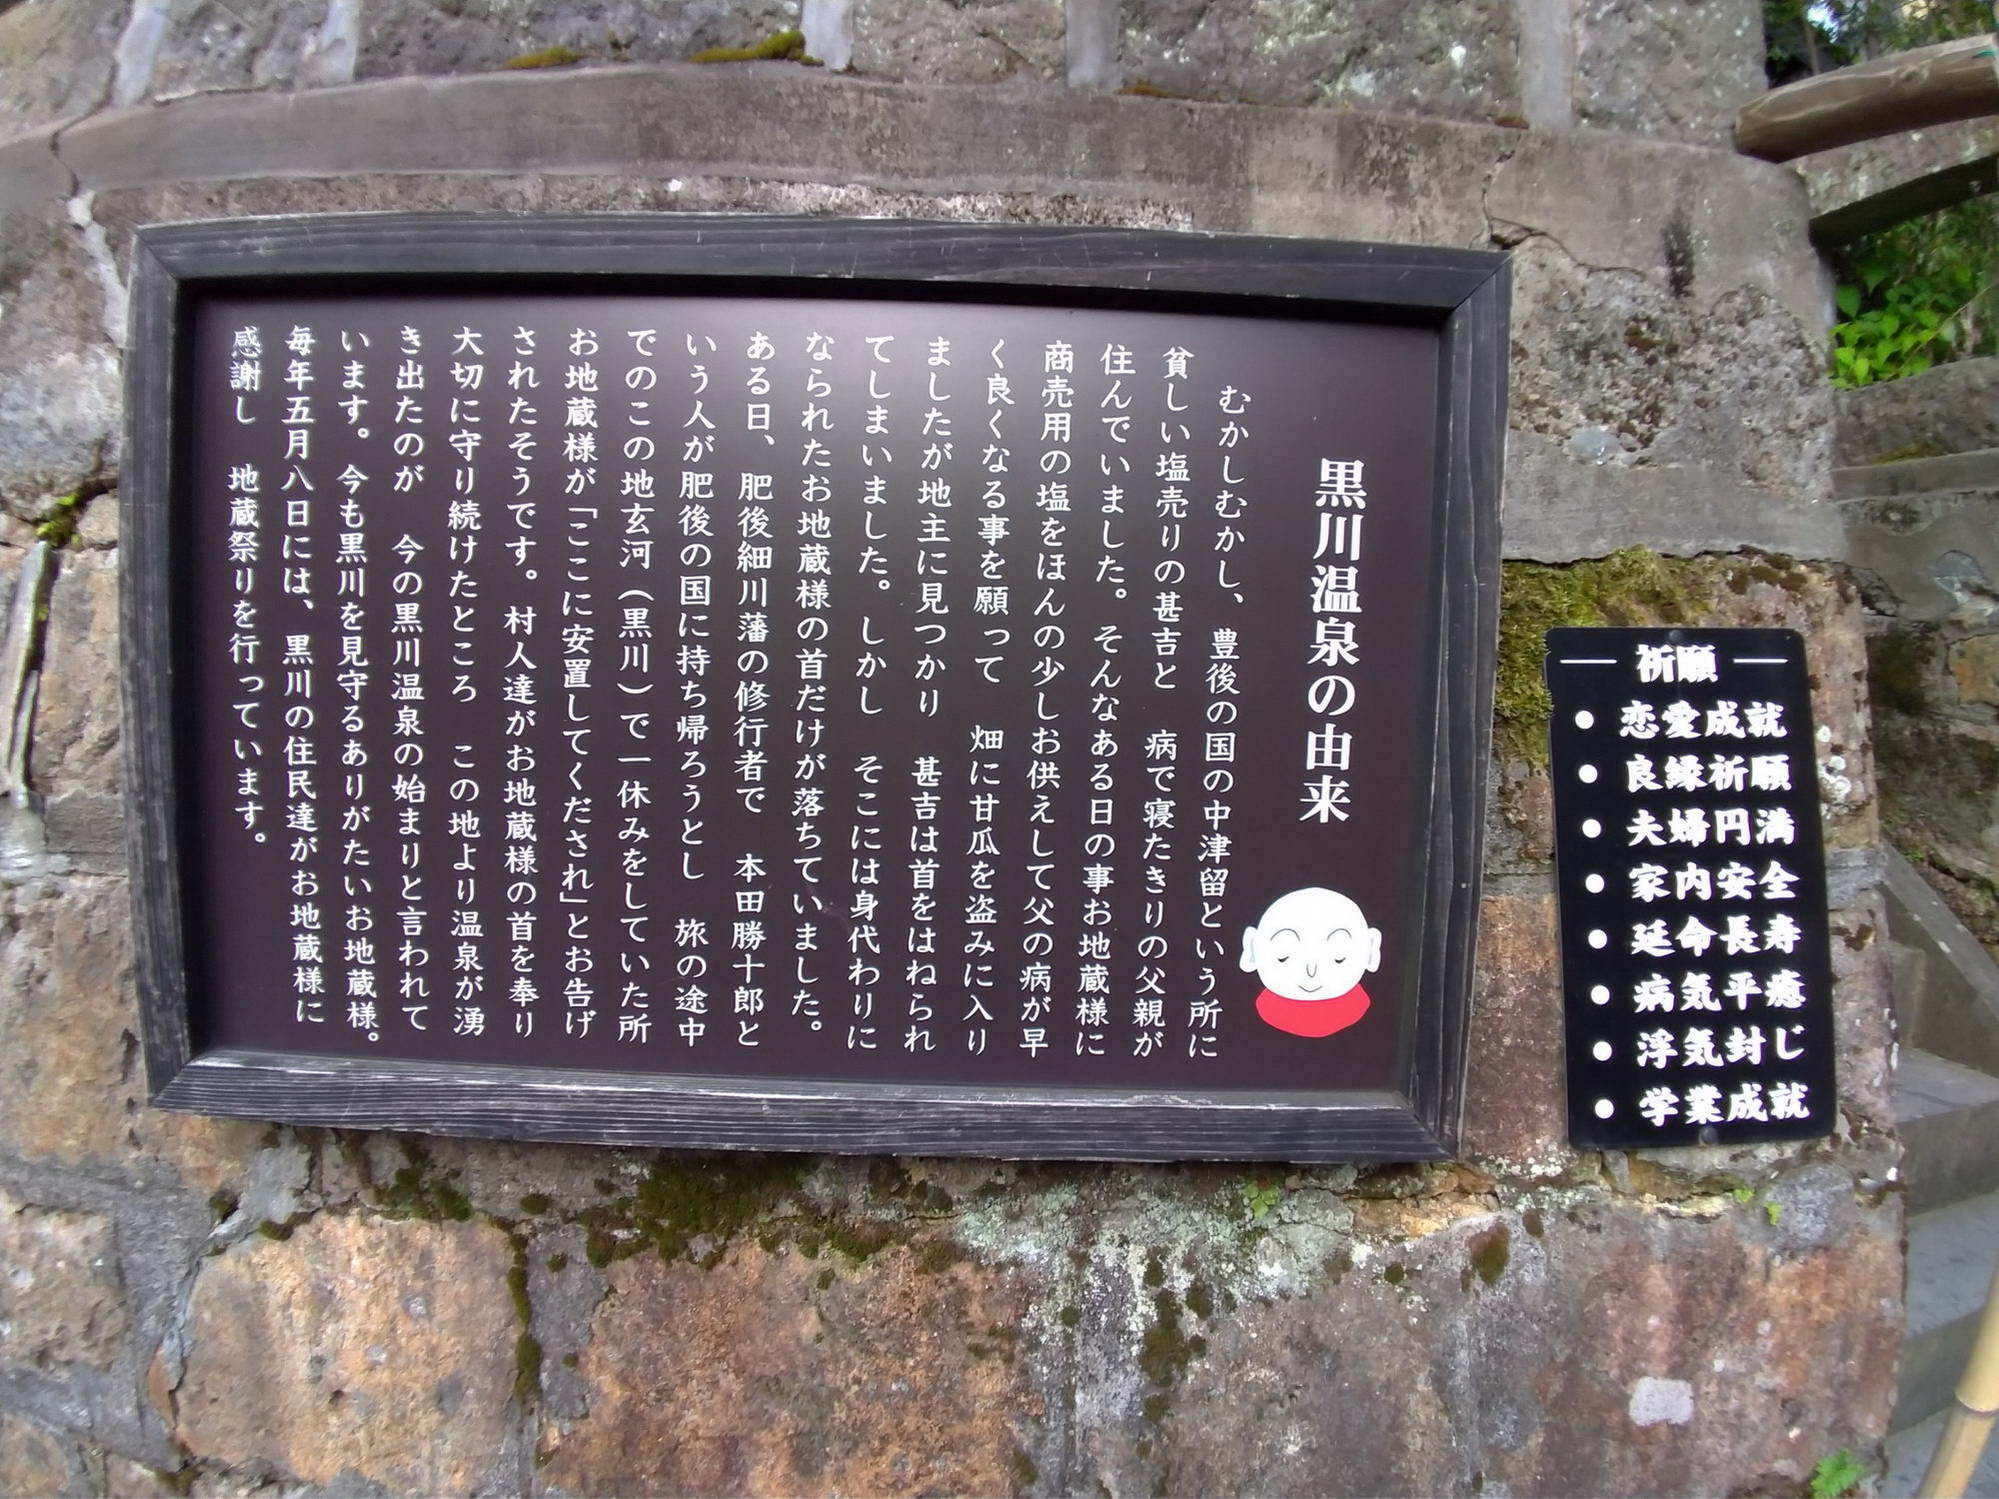 黒川温泉の由来
むかしむかし、豊後の国の中津留という所に
貧しい塩売りの甚吉と　病で寝たきりの父親が
住んでいました。そんなある日の事お地蔵様に
商売用の塩をほんの少しお供えして父の病が早
く良くなる事を願って　畑に甘瓜を盗みに入り
ましたが地主に見つかり　甚吉は首をはねられ
てしまいました。しかし　そこには身代わりに
なられたお地蔵様の首だけが落ちていました。
ある日、肥後細川藩の修行者で　本田勝十郎と
いう人が肥後の国に持ち帰ろうとし　旅の途中
でのこの地玄河（黒川）で一休みをしていた所
お地蔵様が「ここに安置してくだされ」とお告げ
されたそうです。村人達がお地蔵様の首を奉り
大切に守り続けたところ　この地より温泉が湧
き出たのが　今の黒川温泉の始まりと言われて
います。今も黒川を見守るありがたいお地蔵様。
毎年五月八日には、黒川の住民達がお地蔵様に
感謝し　地蔵祭りを行っています。
祈願
● 恋愛成就
● 良縁祈願
● 夫婦円満
● 家内安全
● 延命長寿
● 病気平癒
● 浮気封じ
● 学業成就